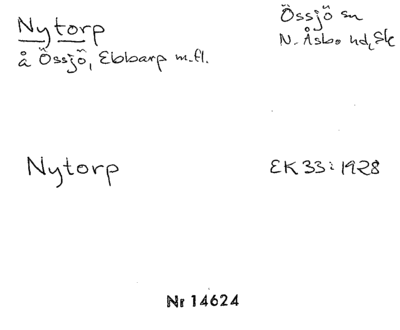 Nytorp
å Össjö, Ebbarp m.fl.
Össjö sn
N. Åsbo hd, Sk
Nytorp
EK 33: 1928
Nr 14624